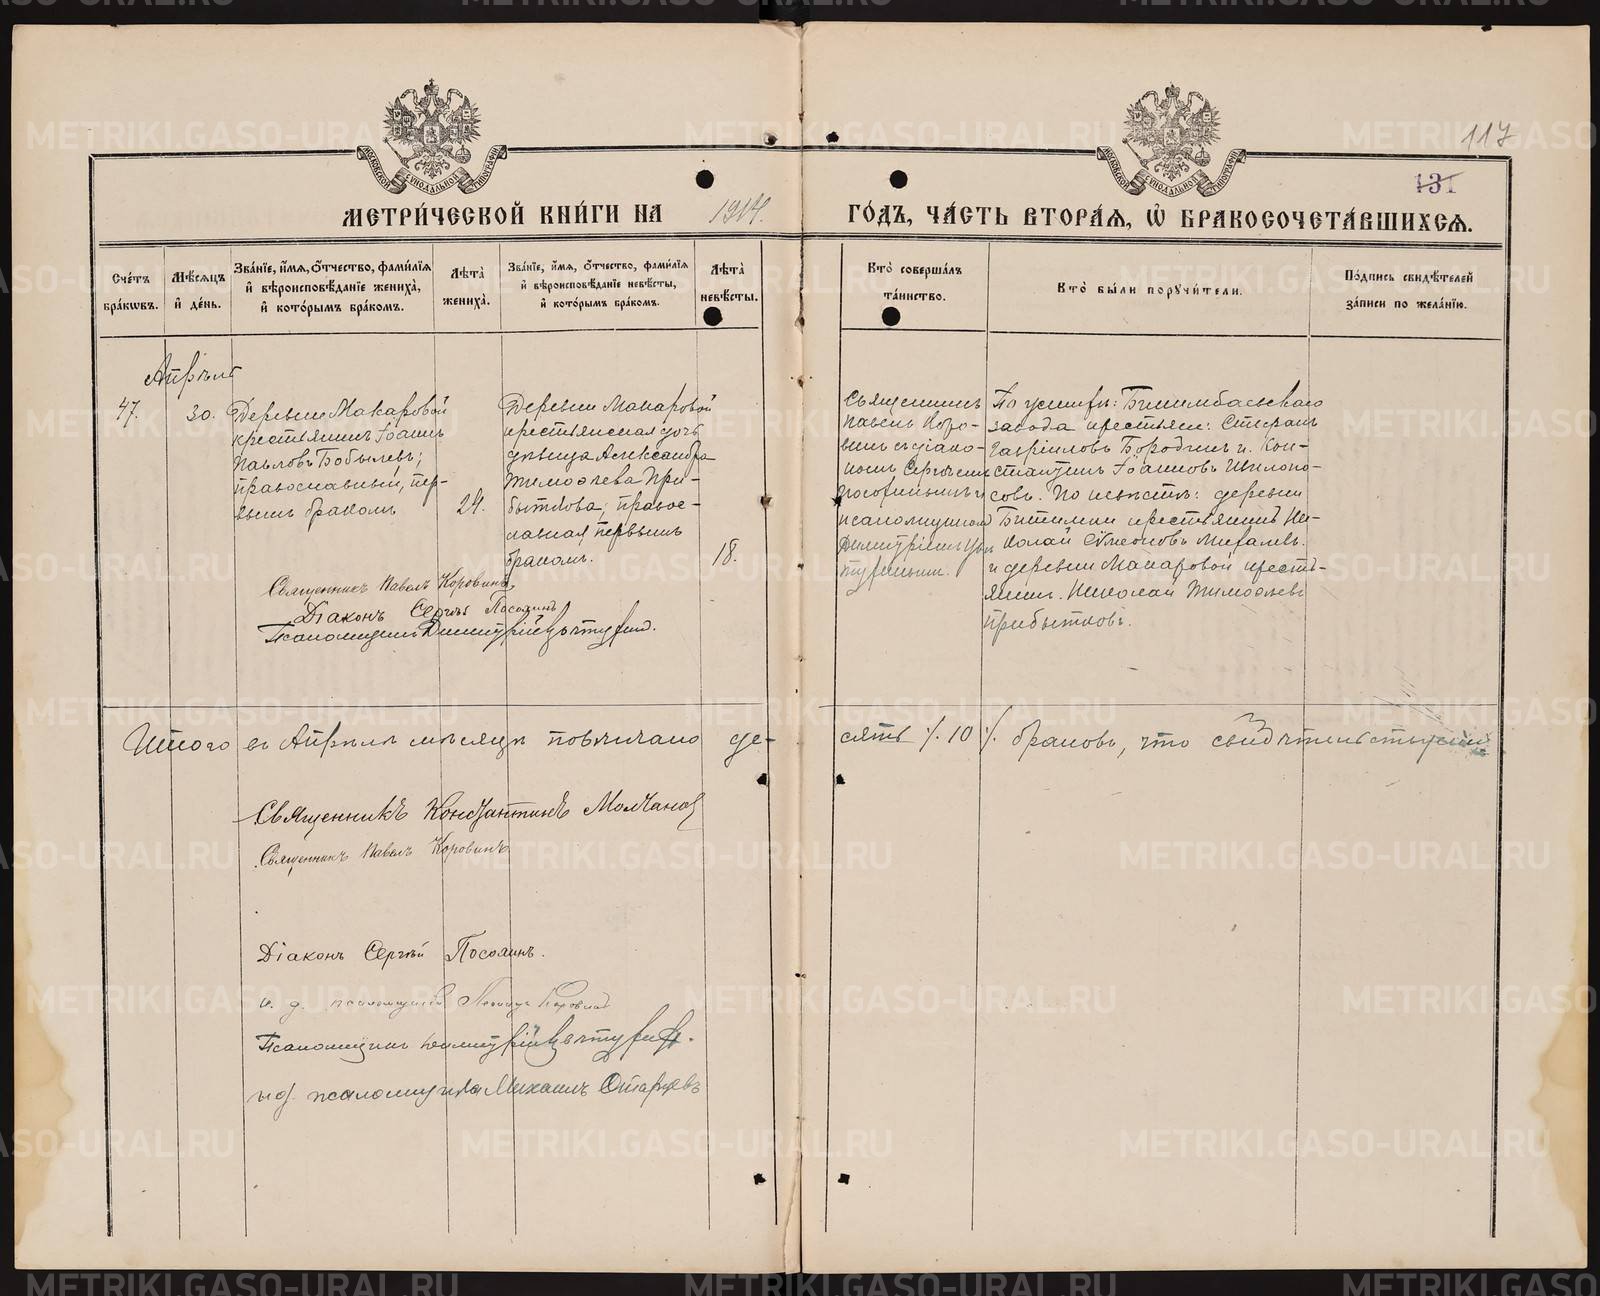 117
131
МОСКОВСКОЙ СУНОДАЛЬНОЙ ТИПОГРАФІИ
МОСКОВСКОЙ СУНОДАЛЬНОЙ ТИПОГРАФІИ
МЕТРИ́ЧЕСКОЙ КНИ́ГИ НА 1914. ГО́ДЪ, ЧА́СТЬ ВТОРА́Ѧ, Ѿ БРАКОСОЧЕТА́ВШИХСѦ.
Сче́тъ бра́кѡвъ.
Мѣ́сѧцъ и҆ де́нь.
Зва́нїе, и҆́мѧ, ѻ҆́тчество, фами́лїѧ и҆ вѣроисповѣ́данїе жениха̀, и҆ кото́рымъ бра́комъ.
Лѣта̀ жениха̀.
Зва́нїе, и҆́мѧ, ѻ҆́тчество, фами́лїѧ и҆ вѣроисповѣ́данїе невѣ́сты, и҆ кото́рымъ бра́комъ.
Лѣта̀ невѣ́сты.
Кто̀ соверша́лъ та́инство.
Кто̀ бы́ли порꙋчи́тели.
По́дпись свидѣ́телей за́писи по жела́нїю.
Апрѣль
47.
30.
Деревни Макаровой
крестьянинъ Іоаннъ
Павловъ Бобылевъ;
православный, пер-
вымъ бракомъ
24.
Деревни Макаровой
крестьянская дочь
дѣвица Александра
Тимоѳеева При-
быткова; правос-
лавная первымъ
бракомъ.
18.
Священникъ
Павелъ Коро-
винъ съ діако-
номъ Сергѣемъ
и
псаломщикомъ
Димитріемъ
По женихѣ: Билимбаевскаго
завода крестьяне: Стефанъ
Гавріиловъ Бородинъ и Кон-
стантинъ Іоанновъ
По невѣстѣ: деревни
Битимки крестьянинъ Ни-
колай Сѵмеоновъ
и деревни Макаровой кресть-
янинъ Николай Тимоѳеевъ
Прибытковъ.
Священникъ Павелъ Коровинъ
Діаконъ Сергѣй
Псаломщикъ Димитрій
Итого въ Апрѣлѣ мѣсяцѣ повѣнчано де-
сять /. 10 /. браковъ, что свидѣтельствуемъ
Священникъ Константинъ Молчановъ
Священникъ Павелъ Коровинъ
Діаконъ Сергѣй
и. д. псаломщика
Псаломщикъ Димитрій
и. д. псаломщика Михаилъ
METRIKI.GASO-URAL.RU